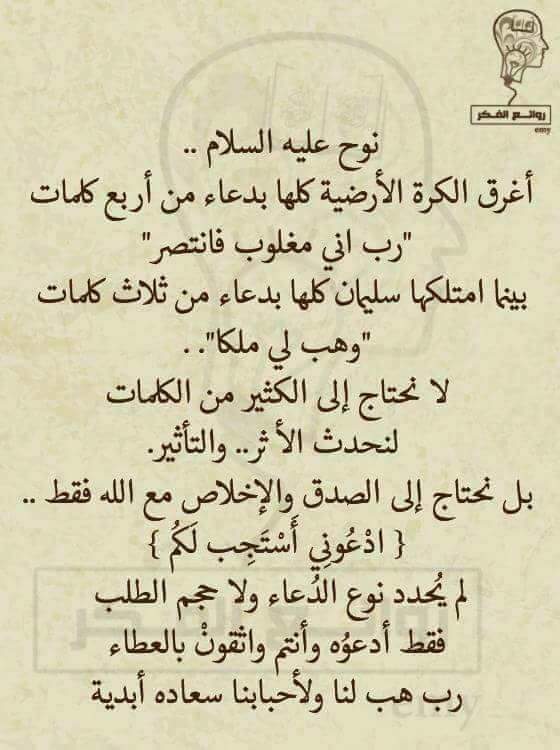 روائع الفكر
emy
نوح عليه السلام ..
أغرق الكرة الأرضية كلها بدعاء من أربع كلمات
"رب اني مغلوب فانتصر"
بينما امتلكها سليمان كلها بدعاء من ثلاث كلمات
"وهب لي ملكا". .
لا نحتاج إلى الكثير من الكلمات
لنحدث الأ ثر.. والتأثير.
بل نحتاج إلى الصدق والإخلاص مع الله فقط ..
{ ادْعُونِي أَسْتَجِب لَكُم }
لم يُحدد نوع الدُعاء ولا حجم الطلب
فقط أدعوُه وأنتم واثقونْ بالعطاء
رب هب لنا ولأحبابنا سعاده أبدية
روائع الفكر
emy